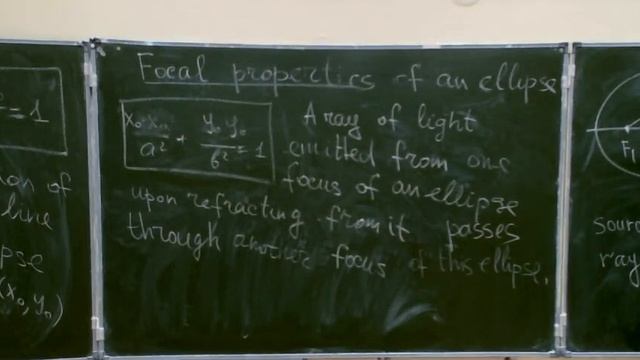 ² = 1
on of
line
pse
(x₀, y₀)
Focal properties of an ellipse
x₀·x₀/a² + y₀ y₀/b² = 1
A ray of light
emitted from one
focus of an ellipse
upon refracting from it passes
through another focus of this ellipse.
F₁
sour
ray